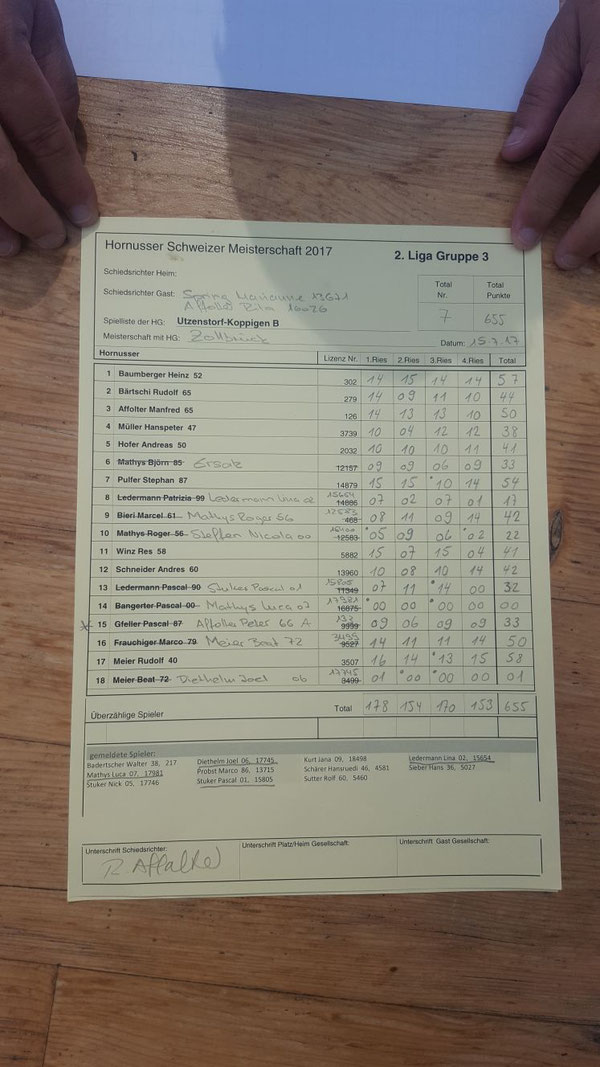 Hornusser Schweizer Meisterschaft 2017 2. Liga Gruppe 3
Schiedsrichter Heim:
Schiedsrichter Gast: Spring Marianne 13671
Affolter 16026
Total Nr. Total Punkte
7 655
Spielliste der HG: Utzenstorf-Koppigen B
Meisterschaft mit HG: Zollbrück Datum: 15.7.17
Hornusser Lizenz Nr. 1.Ries 2.Ries 3.Ries 4.Ries Total
1 Baumberger Heinz 52 302 14 15 14 14 57
2 Bärtschi Rudolf 65 279 14 09 11 10 44
3 Affolter Manfred 65 126 14 13 13 10 50
4 Müller Hanspeter 47 3739 10 04 12 12 38
5 Hofer Andreas 50 2032 10 10 10 11 41
6 Mathys Björn 85 Ersatz 12157 09 09 06 09 33
7 Pulfer Stephan 87 14879 15 15 10 14 54
8 Ledermann Patrizia 99 Ledermann Lina 02 15654 14886 07 02 07 01 17
9 Bieri Marcel 61 Mathys Roger 56 12583 468 08 11 09 14 42
10 Mathys Roger 56 Steffen Nicola 00 12583 05 09 06 02 22
11 Winz Res 58 5882 15 07 15 04 41
12 Schneider Andres 60 13960 10 08 10 14 42
13 Ledermann Pascal 90 Stuker Pascal 01 15805 11349 07 11 14 00 32
14 Bangerter Pascal 00 Mathys Luca 07 17981 16875 00 00 00 00 00
x 15 Gfeller Pascal 87 Affolter Peter 66 A 132 9939 09 06 09 09 33
16 Frauchiger Marco 79 Meier Beat 72 3499 9527 14 11 11 14 50
17 Meier Rudolf 40 3507 16 14 13 15 58
18 Meier Beat 72 Diethelm Joel 06 17745 3499 01 00 00 00 01
Überzählige Spieler Total 178 154 170 153 655
gemeldete Spieler:
Badertscher Walter 38, 217 Diethelm Joel 06, 17745 Kurt Jana 09, 18498 Ledermann Lina 02, 15654
Mathys Luca 07, 17981 Probst Marco 86, 13715 Schärer Hansruedi 46, 4581 Sieber Hans 36, 5027
Stuker Nick 05, 17746 Stuker Pascal 01, 15805 Sutter Rolf 60, 5460
Unterschrift Schiedsrichter: Unterschrift Platz/Heim Gesellschaft: Unterschrift Gast Gesellschaft:
R. Affolter